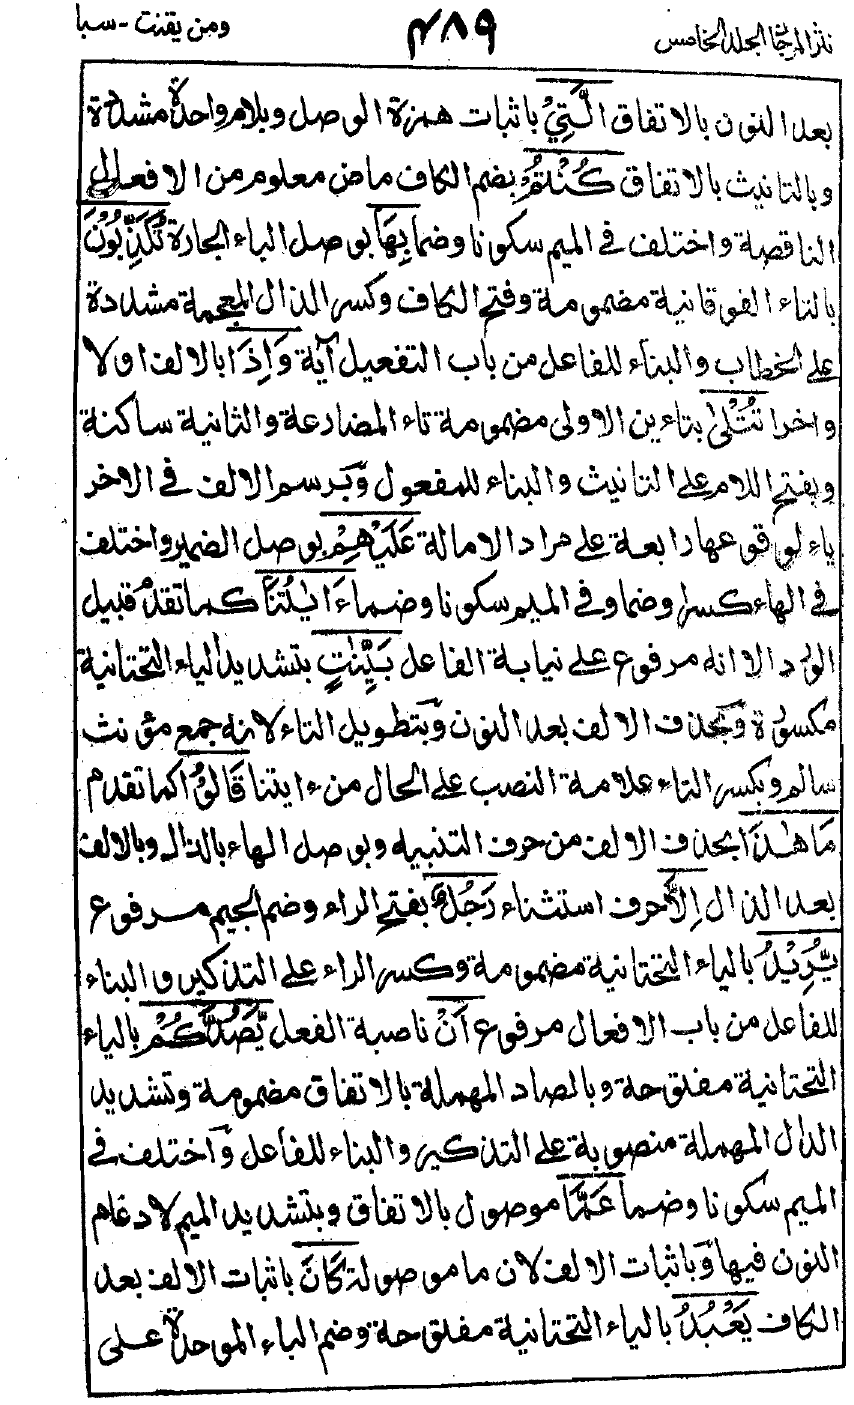 نثر المرجان المجلد الخامس
٤٨٩
ومن يقنت - سبا
بعد النون بالاتفاق الَّتِيْ باثبات همزة الوصل وبلام واحدة مشددة
وبالتانيث بالاتفاق كُنْتُمْ بضم الكاف ماض معلوم من الافعال
الناقصة واختلف فى الميم سكونا وضما بِهَا بوصل الباء الجارة تُكَذِّبُوْنَ
بالتاء الفوقانية مضمومة وفتح الكاف وكسر الذال المعجمة مشددة
على الخطاب والبناء للفاعل من باب التفعيل آية وَاِذَا بالالف اولا
واخرا تُتْلٰى بتاءين الاولى مضمومة تاء المضارعة والثانية ساكنة
وبفتح اللام على التانيث والبناء للمفعول وَبرسم الالف فى الاخر
ياء لوقوعها رابعة على مراد الامالة عَلَيْهِمْ بوصل الضمير واختلف
فى الهاء كسرا وضما وفى الميم سكونا وضما ءَايٰتُنَا كما تقدم قبيل
الورد الا انه مرفوع على نيابة الفاعل بَيِّنٰتٍ بتشديد الياء التحتانية
مكسورة وَبحذف الالف بعد النون وَبتطويل التاء لانه جمع مؤنث
سالم وبكسر التاء علامة النصب على الحال من ءايتنا قَالُوْا كما تقدم
مَا هٰذَا بحذف الالف من حرف التنبيه وبوصل الهاء بالذال وبالالف
بعد الذال اِلَّا حرف استثناء رَجُلٌ بفتح الراء وضم الجيم مرفوع
يُّرِيْدُ بالياء التحتانية مضمومة وكسر الراء على التذكير والبناء
للفاعل من باب الافعال مرفوع اَنْ ناصبة الفعل يَّصُدَّكُمْ بالياء
التحتانية مفتوحة وبالصاد المهملة بالاتفاق مضمومة وتشديد
الدال المهملة منصوبة على التذكير والبناء للفاعل وَاختلف فى
الميم سكونا وضما عَمَّا موصول بالاتفاق وبتشديد الميم لادغام
النون فيها وَباثبات الالف لان ما موصولة كَانَ باثبات الالف بعد
الكاف يَعْبُدُ بالياء التحتانية مفتوحة وضم الباء الموحدة على